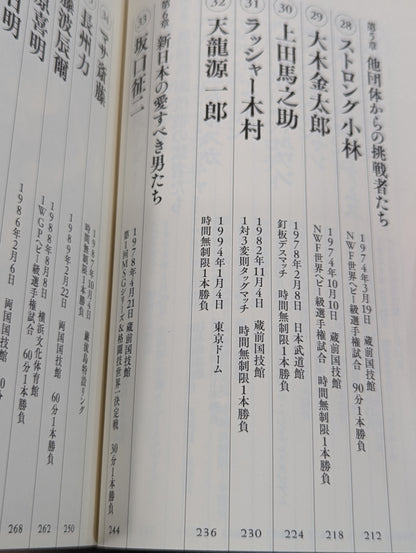 第5章 他団体からの挑戦者たち
28 ストロング小林
1974年3月19日 蔵前国技館
NWF世界ヘビー級選手権試合 90分1本勝負
212
29 大木金太郎
1974年10月10日 蔵前国技館
NWF世界ヘビー級選手権試合 時間無制限1本勝負
218
30 上田馬之助
1978年2月8日 日本武道館
釘板デスマッチ 時間無制限1本勝負
224
31 ラッシャー木村
1982年11月4日 蔵前国技館
1対3変則タッグマッチ 時間無制限1本勝負
230
32 天龍源一郎
1994年1月4日 東京ドーム
時間無制限1本勝負
236
第6章 新日本の愛すべき男たち
33 坂口征二
蔵前国技館
第1回MSGシリーズ&格闘技世界一決定戦 30分1本勝負
244
34 マサ斎藤
1987年10月4日 巌流島特設リング
時間無制限1本勝負
250
長州力
1989年2月22日 両国国技館 60分1本勝負
藤波辰爾
1988年8月8日 横浜文化体育館
IWGPヘビー級選手権試合 60分1本勝負
262
原喜明
1986年2月6日 両国国技館
268